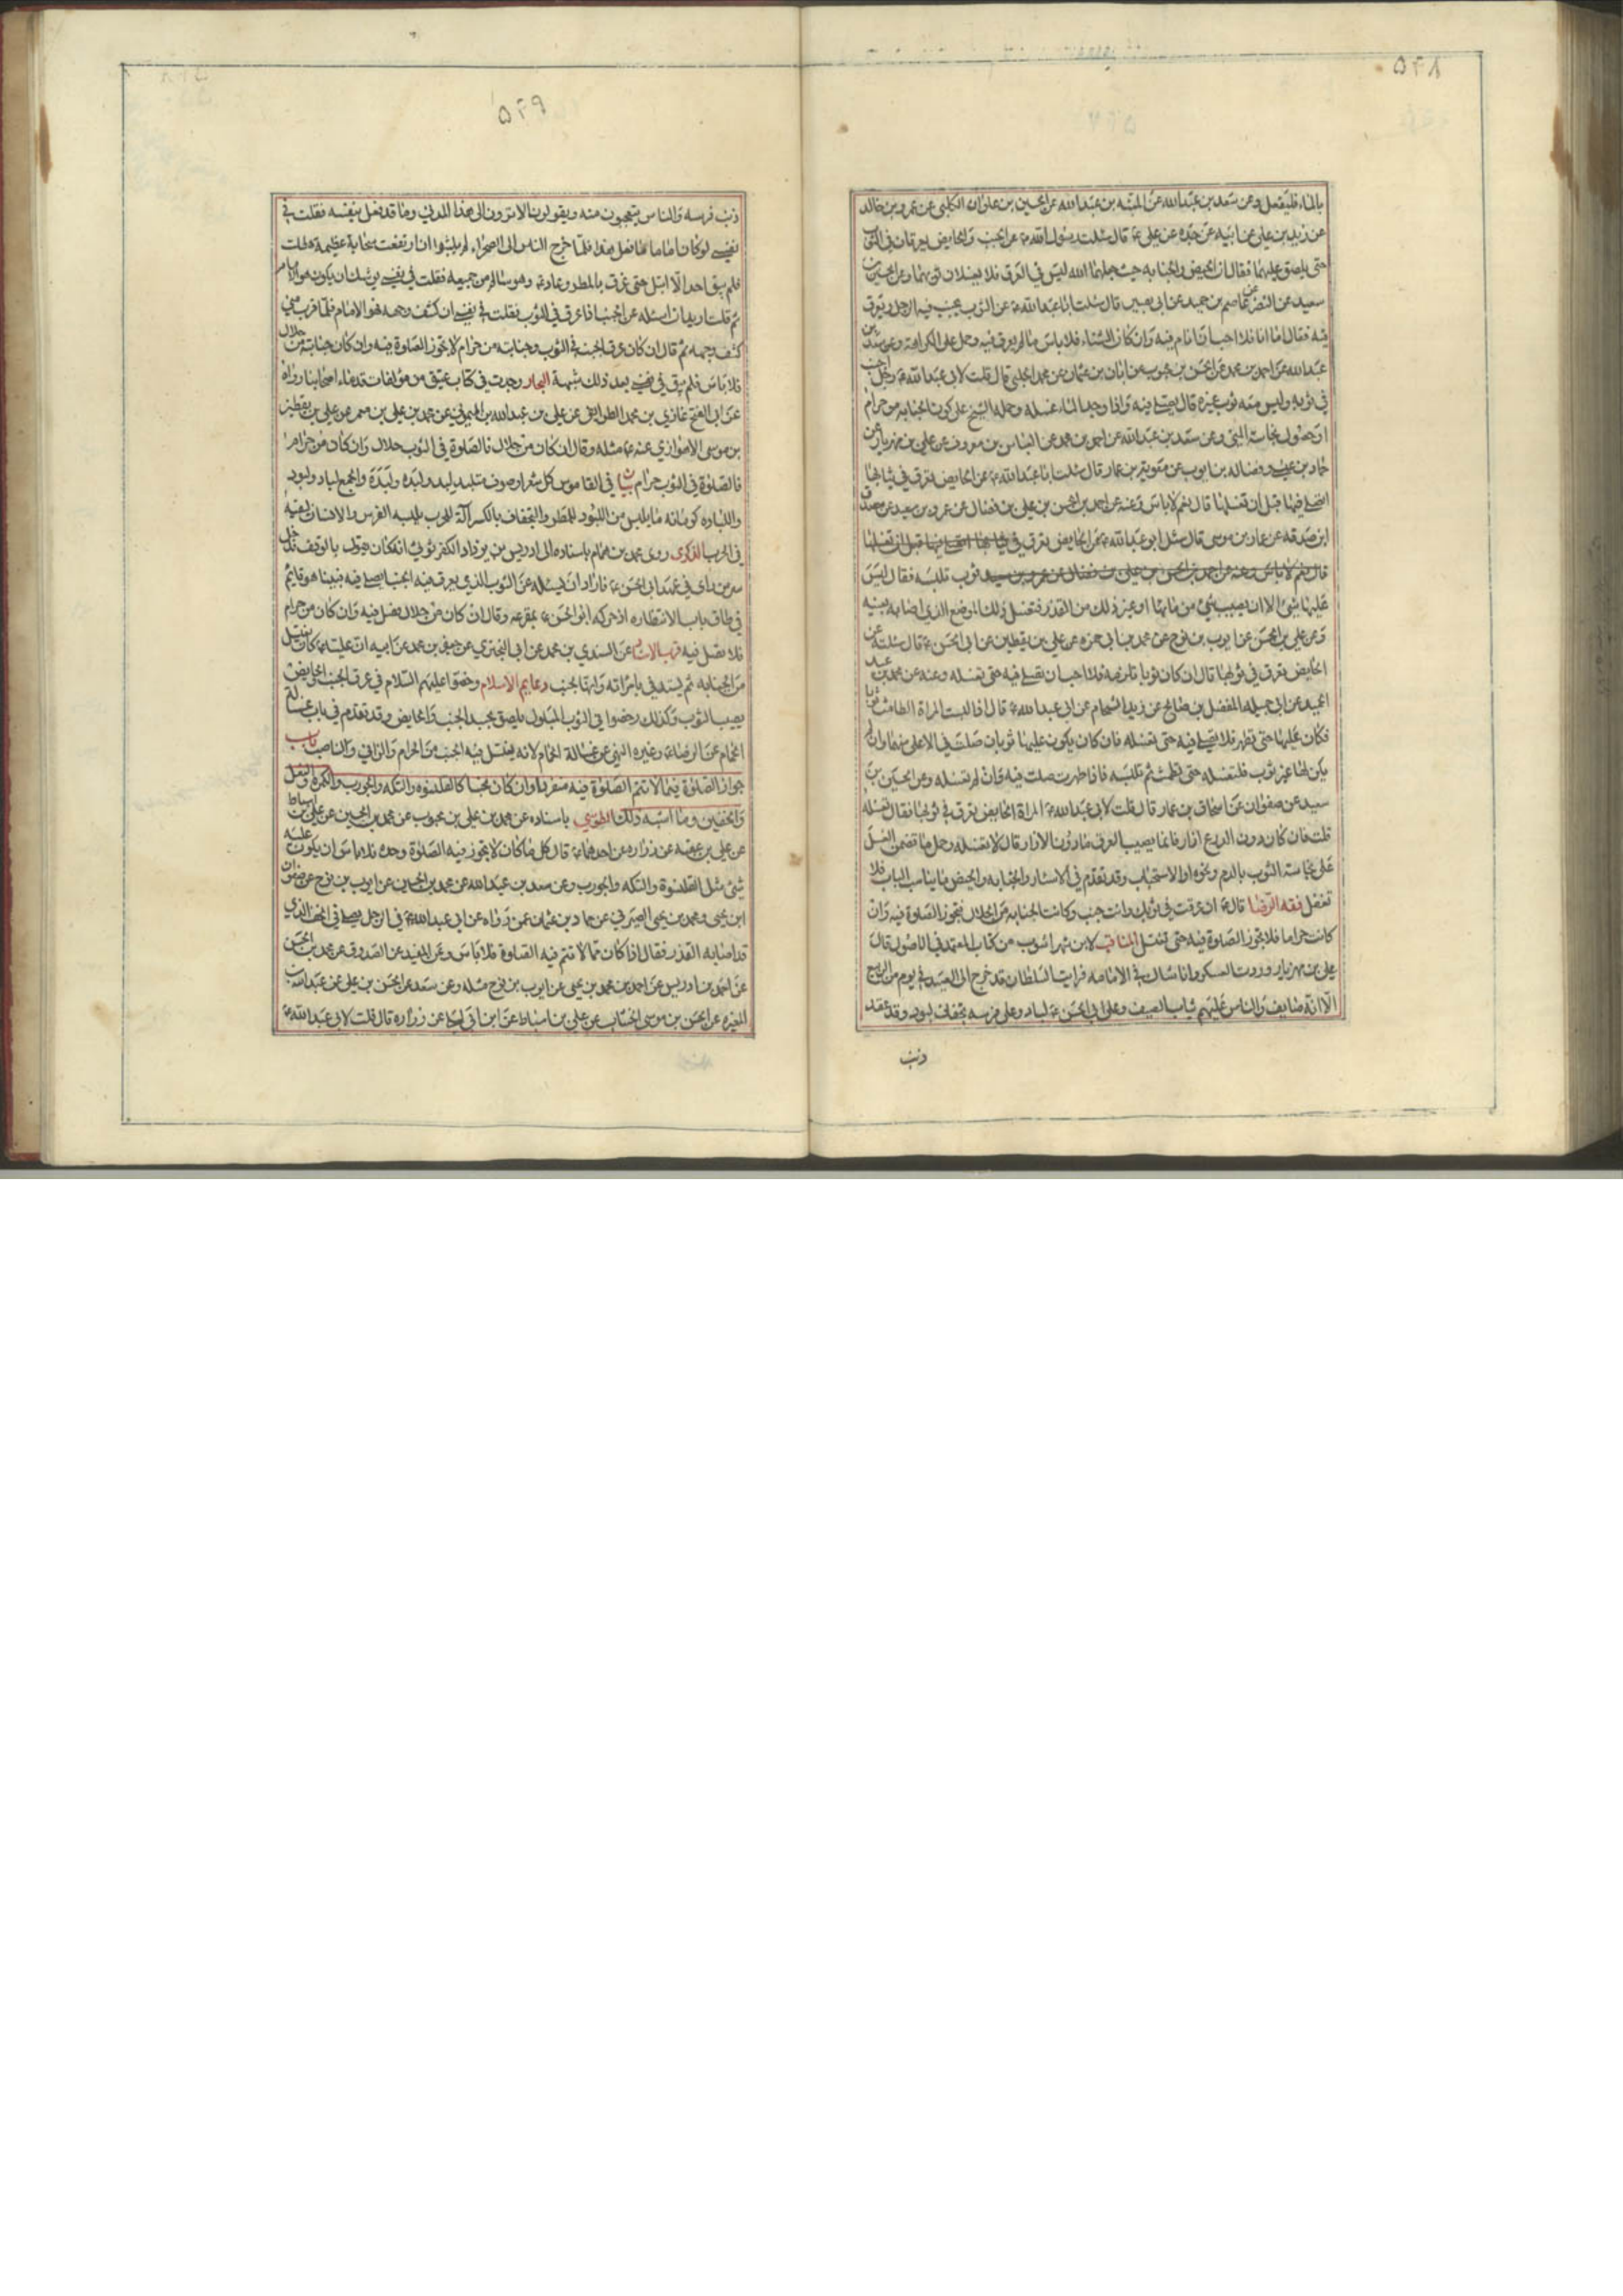 ٥٢٨
بالماء فليفعل وعن سعد بن عبد الله عن المنبه بن عبد الله عن الحسين بن علوان الكلبي عن عمرو بن خالد
عن زيد بن علي عن ابيه عن جده عن علي ع قال سئلت رسول الله ص عن الجنب والحايض يعرقان في الثوب
حتى يلصق عليهما فقال ان الحيض والجنابه حيث جعلهما الله ليس في العرق فلا يغسلان ثوبهما وعن الحسين بن
سعيد عن النضر عن عاصم بن حميد عن ابى بصير قال سئلت ابا عبد الله ع عن الثوب يجنب فيه الرجل ويعرق
فيه فقال اما انا فلا احب ان انام فيه وان كان الشتاء فلا باس ما لم يعرق فيه وحمل على الكراهة وعن سعد بن
عبد الله عن احمد بن محمد عن الحسن بن محبوب عن ابان بن عثمان عن محمد الحلبي قال قلت لابى عبد الله ع رجل اجنب
في ثوبه وليس معه ثوب غيره قال يصلي فيه واذا وجد الماء غسله وحمله الشيخ على كون الجنابة من حرام
او حصول نجاسة المني وعن سعد بن عبد الله عن احمد بن محمد عن العباس بن معروف عن علي بن مهزيار عن
حماد بن عيسى وفضاله بن ايوب عن معوية بن عمار قال سئلت ابا عبد الله ع عن الحايض تعرق في ثيابها
اتصلي فيها قبل ان تغسلها قال نعم لا باس وعنه عن احمد بن الحسن بن علي بن فضال عن عمرو بن سعيد عن مصدق
ابن صدقه عن عمار بن موسى قال سئل ابو عبد الله ع عن الحايض تعرق في ثيابها اتصلي فيها قبل ان تغسلها
قال نعم لا باس وعنه عن احمد بن الحسن بن علي بن فضال عن عمرو بن سعيد ثوب تلبسه فقال ليس
عليها شئ الا ان يصيب شئ من مائها او غير ذلك من القذر فتغسل ذلك الموضع الذي اصابه بعينه
وعن علي بن الحسن عن ايوب بن نوح عن محمد بن ابى حمزه عن علي بن يقطين عن ابى الحسن ع قال سئلته عن
الحايض تعرق في ثوبها قال ان كان ثوبا تلزمه فلا احب ان تصلي فيه حتى تغسله وعنه عن محمد بن عبد
الحميد عن ابى جميله المفضل بن صالح عن زيد الشحام عن ابى عبد الله ع قال اذا لبست المراة الطامث ثوبا
فكان عليها حتى تطهر فلا تصلي فيه حتى تغسله فان كان يكون عليها ثوبان صلت في الاعلى منهما وان لم
يكن لها غير ثوب فلتغسله حتى تطمث ثم تلبسه فاذا طهرت صلت فيه فان لم تغسله وعن الحسين بن
سعيد عن صفوان عن اسحاق بن عمار قال قلت لابى عبد الله ع المراة الحايض تعرق في ثوبها فقال تغسله
قلت فان كان دون الدرع ازار فانما يصيب العرق ما دون الازار قال لا تغسله وحمل ما تضمن الغسل
على نجاسة الثوب بالدم ونحوه او الاستحباب وقد تقدم في الاسئار والجنابه والحيض ما يناسب الباب فلا
تغفل فقه الرضا قال ع ان عرقت في ثوبك وانت جنب وكانت الجنابة من الحلال فتجوز الصلوة فيه وان
كانت حراما فلا تجوز الصلوة فيه حتى تغتسل المناقب لابن شهر اشوب من كتاب المعتمد في الاصول قال
علي بن مهزيار وردت العسكر وانا شاك في الامامه فرايت السلطان قد خرج الى الصيد في يوم من الربيع
الا انه صايف والناس عليهم ثياب الصيف وعلى ابى الحسن ع لباد وعلى فرسه تجفاف لبود وقد عقد
ذنب
٥٢٩
ذنب فرسه والناس يتعجبون منه ويقولون الا ترون الى هذا المدني وما قد فعل بنفسه فقلت في
نفسي لو كان اماما ما فعل هذا فلما خرج الناس الى الصحراء لم يلبثوا ان ارتفعت سحابة عظيمة هطلت
فلم يبق احد الا ابتل حتى غرق بالمطر وعاد ع وهو سالم من جميعه فقلت في نفسي يوشك ان يكون هو الامام
ثم قلت اريد ان اسئله عن الجنب اذا عرق في الثوب فقلت في نفسي ان كشف وجهه فهو الامام فلما قرب مني
كشف وجهه ثم قال ان كان عرق الجنب في الثوب وجنابته من حرام لا يجوز الصلوة فيه وان كان جنابته من حلال
فلا باس فلم يبق في نفسي بعد ذلك شبهة البحار وجدت في كتاب عتيق من مؤلفات قدماء اصحابنا رواه
عن ابى الفتح غازي بن محمد الطرائفي عن علي بن عبد الله الميموني عن محمد بن علي بن معمر عن علي بن يقطين
بن موسى الاهوازي عنه ع مثله وقال ان كان من حلال فالصلوة في الثوب حلال وان كان من حرام
فالصلوة في الثوب حرام بيان في القاموس كل شعر او صوف متلبد لبد ولبده ولبدة والجمع لباد ولبود
واللباده كرمانه ما يلبس من اللبود للمطر والتجفاف بالكسر آلة للحرب يلبسه الفرس والانسان ليقيه
في الحرب الذكرى روى محمد بن همام باسناده الى ادريس بن يزداد الكفرثوثي انه كان يقول بالوقف فدخل
سر من راى في عهد ابى الحسن ع فاراد ان يسئله عن الثوب الذي يعرق فيه الجنب ايصلي فيه فبينا هو قايم
في طاق باب لانتظاره اذ حركه ابو الحسن ع بمقرعة وقال ان كان من حلال فصل فيه وان كان من حرام
فلا تصل فيه قرب الاسناد عن السندي بن محمد عن ابى البختري عن جعفر بن محمد عن ابيه ان عليا ع كان يغتسل
من الجنابه ثم يستدفي بامراته وانها لجنب دعايم الاسلام ورخصوا عليهم السلام في عرق الجنب والحايض
يصيب الثوب وكذلك رخصوا في الثوب المبلول يلصق بجسد الجنب والحايض وقد تقدم في باب غسالة
الحمام عن الرضا ع وغيره النهي عن غسالة الحمام لانه يغتسل فيه الجنب من الحرام والزاني والناصب باب
جواز الصلوة فيما لا تتم الصلوة فيه منفردا وان كان نجسا كالقلنسوه والتكه والجورب والكمرة والنعل
والخفين وما اشبه ذلك الطوسي باسناده عن محمد بن علي بن محبوب عن محمد بن الحسين عن علي بن اسباط
عن علي بن عقبه عن زراره عن احدهما ع قال كل ما كان لا تجوز فيه الصلوة وحده فلا باس ان يكون عليه
شئ مثل القلنسوة والتكه والجورب وعن سعد بن عبد الله عن محمد بن الحسين عن ايوب بن نوح عن صفوان
ابن يحيى ومحمد بن يحيى الصيرفي عن حماد بن عثمان عمن رواه عن ابى عبد الله ع في الرجل يصلي في الخف الذي
قد اصابه القذر فقال اذا كان مما لا تتم فيه الصلوة فلا باس وعن المفيد عن الصدوق عن محمد بن الحسن
عن احمد بن ادريس عن احمد بن محمد بن يحيى عن ايوب بن نوح مثله وعن سعد عن الحسن بن علي عن عبد الله بن
المغيره عن الحسن بن موسى الخشاب عن علي بن اسباط عن ابن ابى ليلى عن زراره قال قلت لابى عبد الله ع